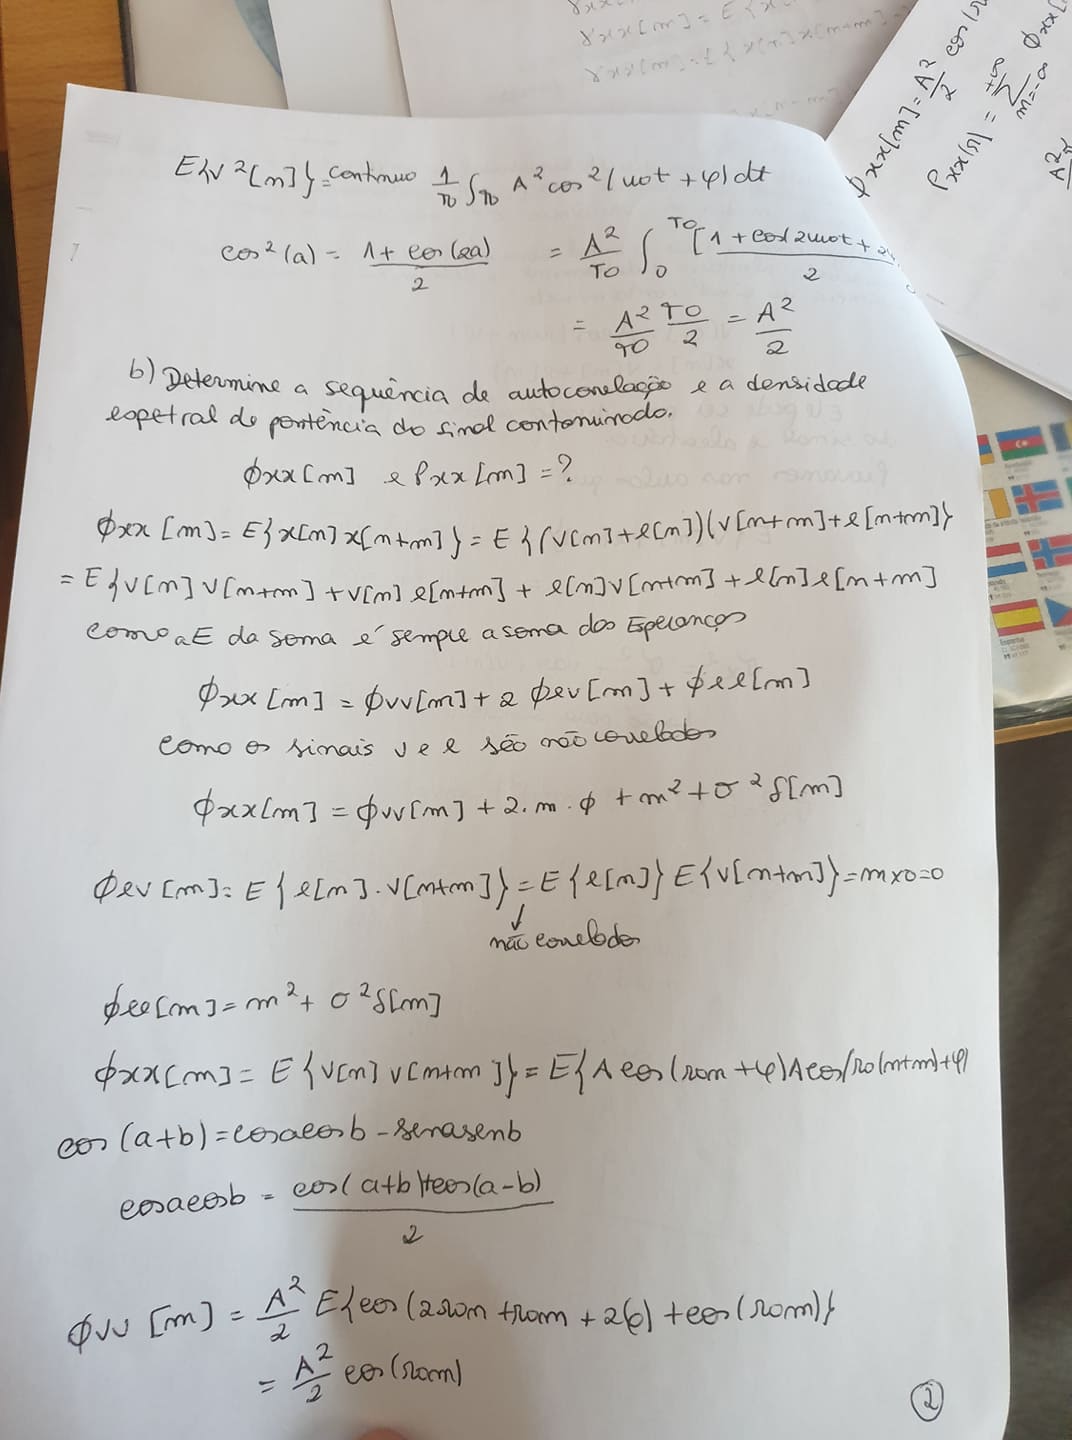 γxx[m] = E{x
E{v²[n]} = continuo 1/T0 ∫T0 A² cos²(ω0t + φ) dt
cos²(a) = 1 + cos(2a) / 2 = A²/T0 ∫0^T0 [1 + cos(2ω0t + 2 / 2
= A²/T0 T0/2 = A²/2
b) Determine a sequência de autocorrelação e a densidade
espetral de pontência do sinal contaminado.
ϕxx[m] e Pxx[m] = ?
ϕxx[m] = E{x[n] x[n+m]} = E{(v[n]+e[n])(v[n+m]+e[n+m]}
= E{v[n] v[n+m] + v[n] e[n+m] + e[n] v[n+m] + e[n] e[n+m]
como a E da soma é sempre a soma das Esperanças
ϕxx[m] = ϕvv[m] + 2 ϕev[m] + ϕee[m]
como os sinais v e e são não correlados
ϕxx[m] = ϕvv[m] + 2.m.ϕ + m² + σ² δ[m]
ϕev[m] = E{e[n].v[n+m]} = E{e[n]} E{v[n+m]} = m×0=0
↓
não correlados
ϕee[m] = m² + σ² δ[m]
ϕxx[m] = E{v[n] v[n+m]} = E{A cos(Ω0n + φ) A cos(Ω0(n+m)+φ)
cos(a+b) = cosacosb - senasenb
cosacosb = cos(a+b)+cos(a-b) / 2
ϕvv[m] = A²/2 E{cos(2Ω0n + Ω0m + 2φ) + cos(Ω0m)}
= A²/2 cos(Ω0m)
2
ϕxx[m] = A²/2 cos(Ω
Pxx(Ω) = +∞ Σ m=-∞ ϕxx[